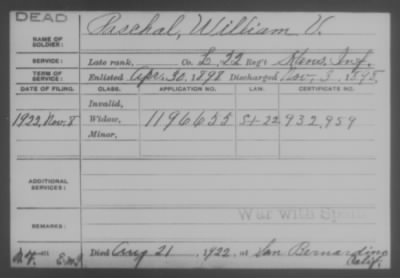 DEAD
NAME OF SOLDIER: Paschal, William V.
SERVICE: Late rank, Co. E, 22 Reg't Kans. Inf.
TERM OF SERVICE: Enlisted Apr. 30, 1898 Discharged Nov. 3, 1898.
DATE OF FILING. CLASS. APPLICATION NO. LAW. CERTIFICATE NO.
Invalid,
1922, Nov. 8 Widow, 1196655 S1-22 932,959
Minor,
ADDITIONAL SERVICES:
War with Spain
REMARKS:
Died Aug 21, 1922, at San Bernardino
Calif.